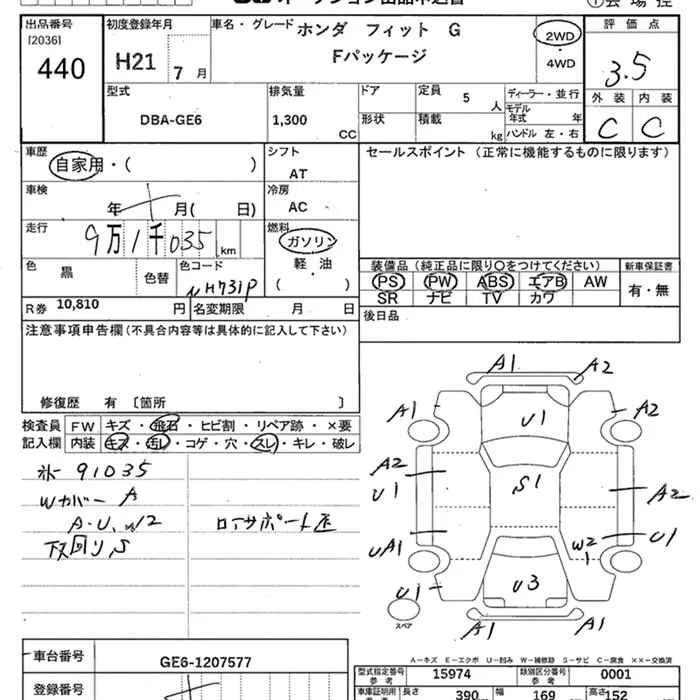 出品番号
[2036]
440
初度登録年月
H21 7 月
車名・グレード ホンダ フィット G
Fパッケージ
2WD
・
4WD
評価点
3.5
外装 内装
C C
型式
DBA-GE6
排気量
1,300
CC
ドア
形状
定員 5 人
積載 kg
ディーラー・並行
モデル
年式 年
ハンドル 左・右
車歴
自家用・( )
シフト
AT
車検
年 月( 日)
冷房
AC
走行
9万1千035 km
燃料
ガソリン
・
軽油
( )
色 黒
色替
色コード
NH731P
R券 10,810 円
名変期限 月 日
セールスポイント (正常に機能するものに限ります)
装備品 (純正品に限り○をつけてください)
PS PW ABS エアB AW
SR ナビ TV カワ
新車保証書
有・無
後日品
注意事項申告欄 (不具合内容等は具体的に記入して下さい)
修復歴 有 〔箇所 〕
検査員
記入欄
FW キズ・飛石・ヒビ割・リペア跡・×要
内装 キズ・汚レ・コゲ・穴・スレ・キレ・破レ
91035
Wカバー A
A・U, W2
下回り, S
A1 A2
A1 A2
U1
A2
U1
S1
A2
UA1
W2 U1
U1
U3
A1 A1
スペア
A―キズ E―エクボ U―凹み W―補修跡 S―サビ C―腐食 ××―交換済
車台番号 GE6-1207577
登録番号
型式指定番号
参考
15974
類別区分番号
参考
0001
車庫証明用
参考
長さ 390 幅 169 高さ 152